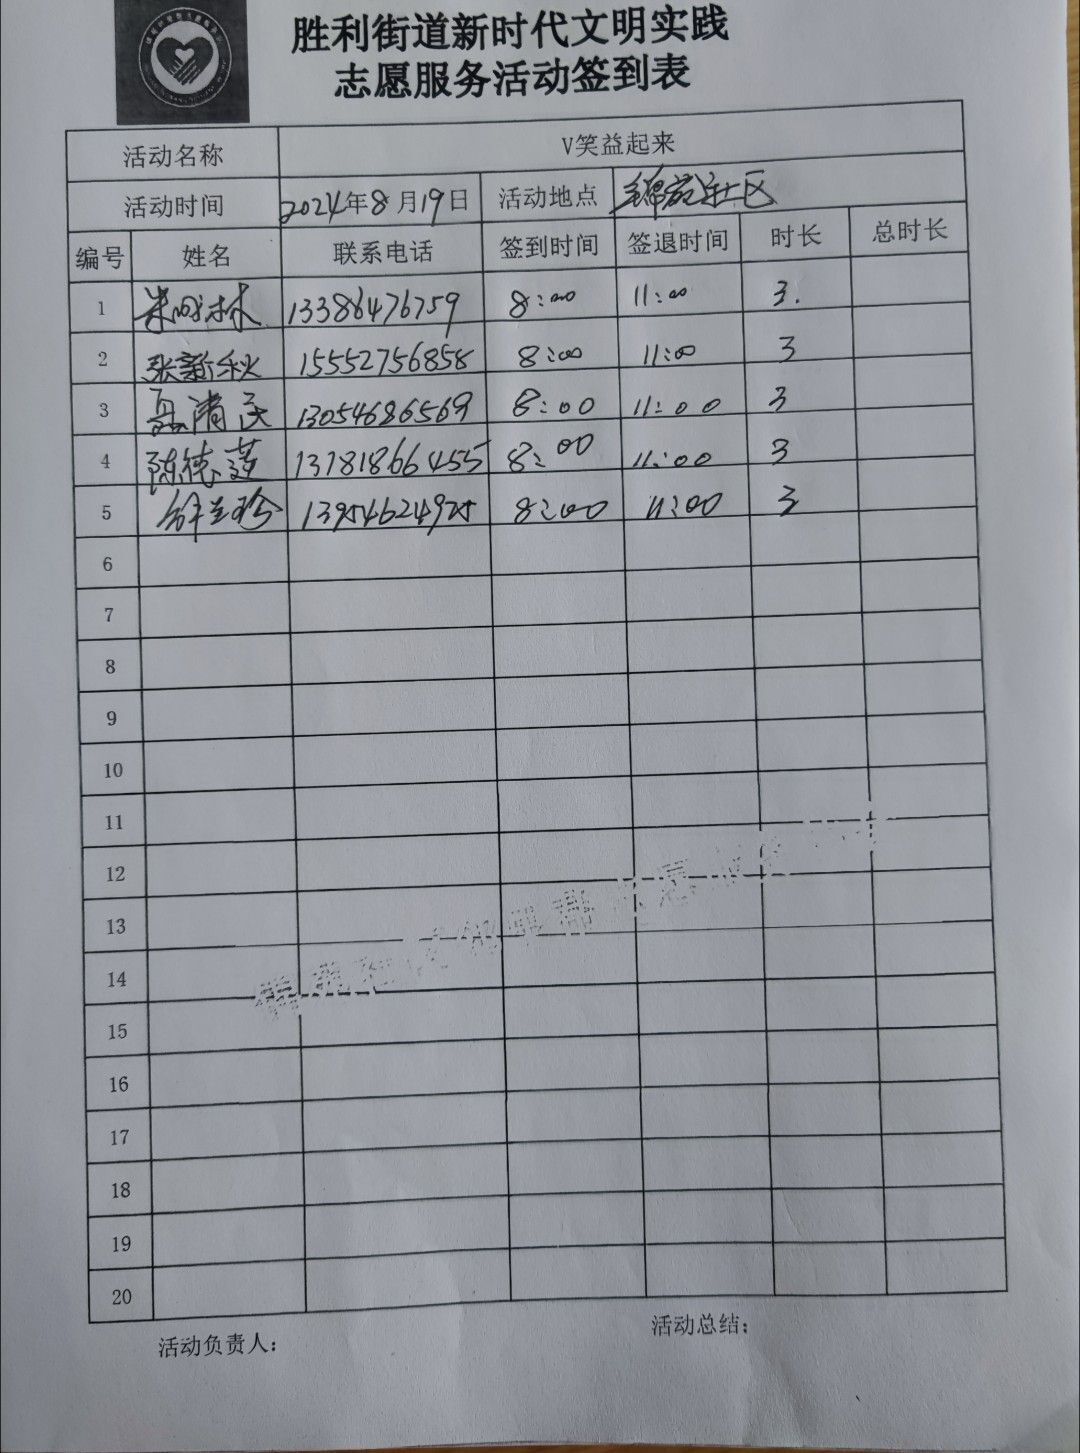 胜利街道新时代文明实践
志愿服务活动签到表
活动名称 V笑益起来
活动时间 2024年8月19日 活动地点 社区
编号 姓名 联系电话 签到时间 签退时间 时长 总时长
1 13386476759 8:00 11:00 3.
2 张新秋 15552756858 8:00 11:00 3
3 聂清民 13054686569 8:00 11:00 3
4 陈德莲 13781866455 8:00 11:00 3
5 13954624925 8:00 11:00 3
6
7
8
9
10
11
12
13
14
15
16
17
18
19
20
活动负责人： 活动总结：